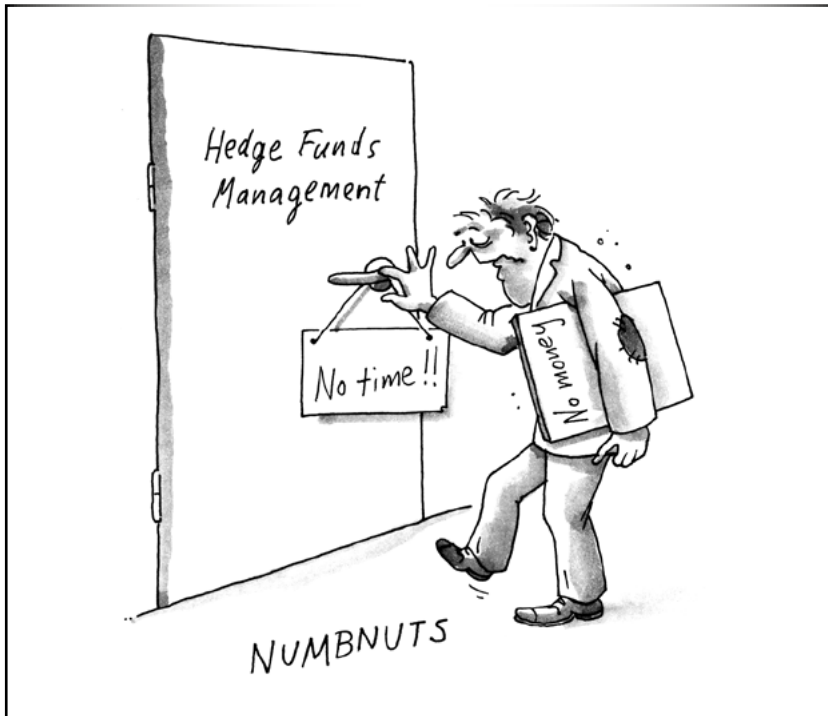 Hedge Funds
Management
No time!!
No money
NUMBNUTS